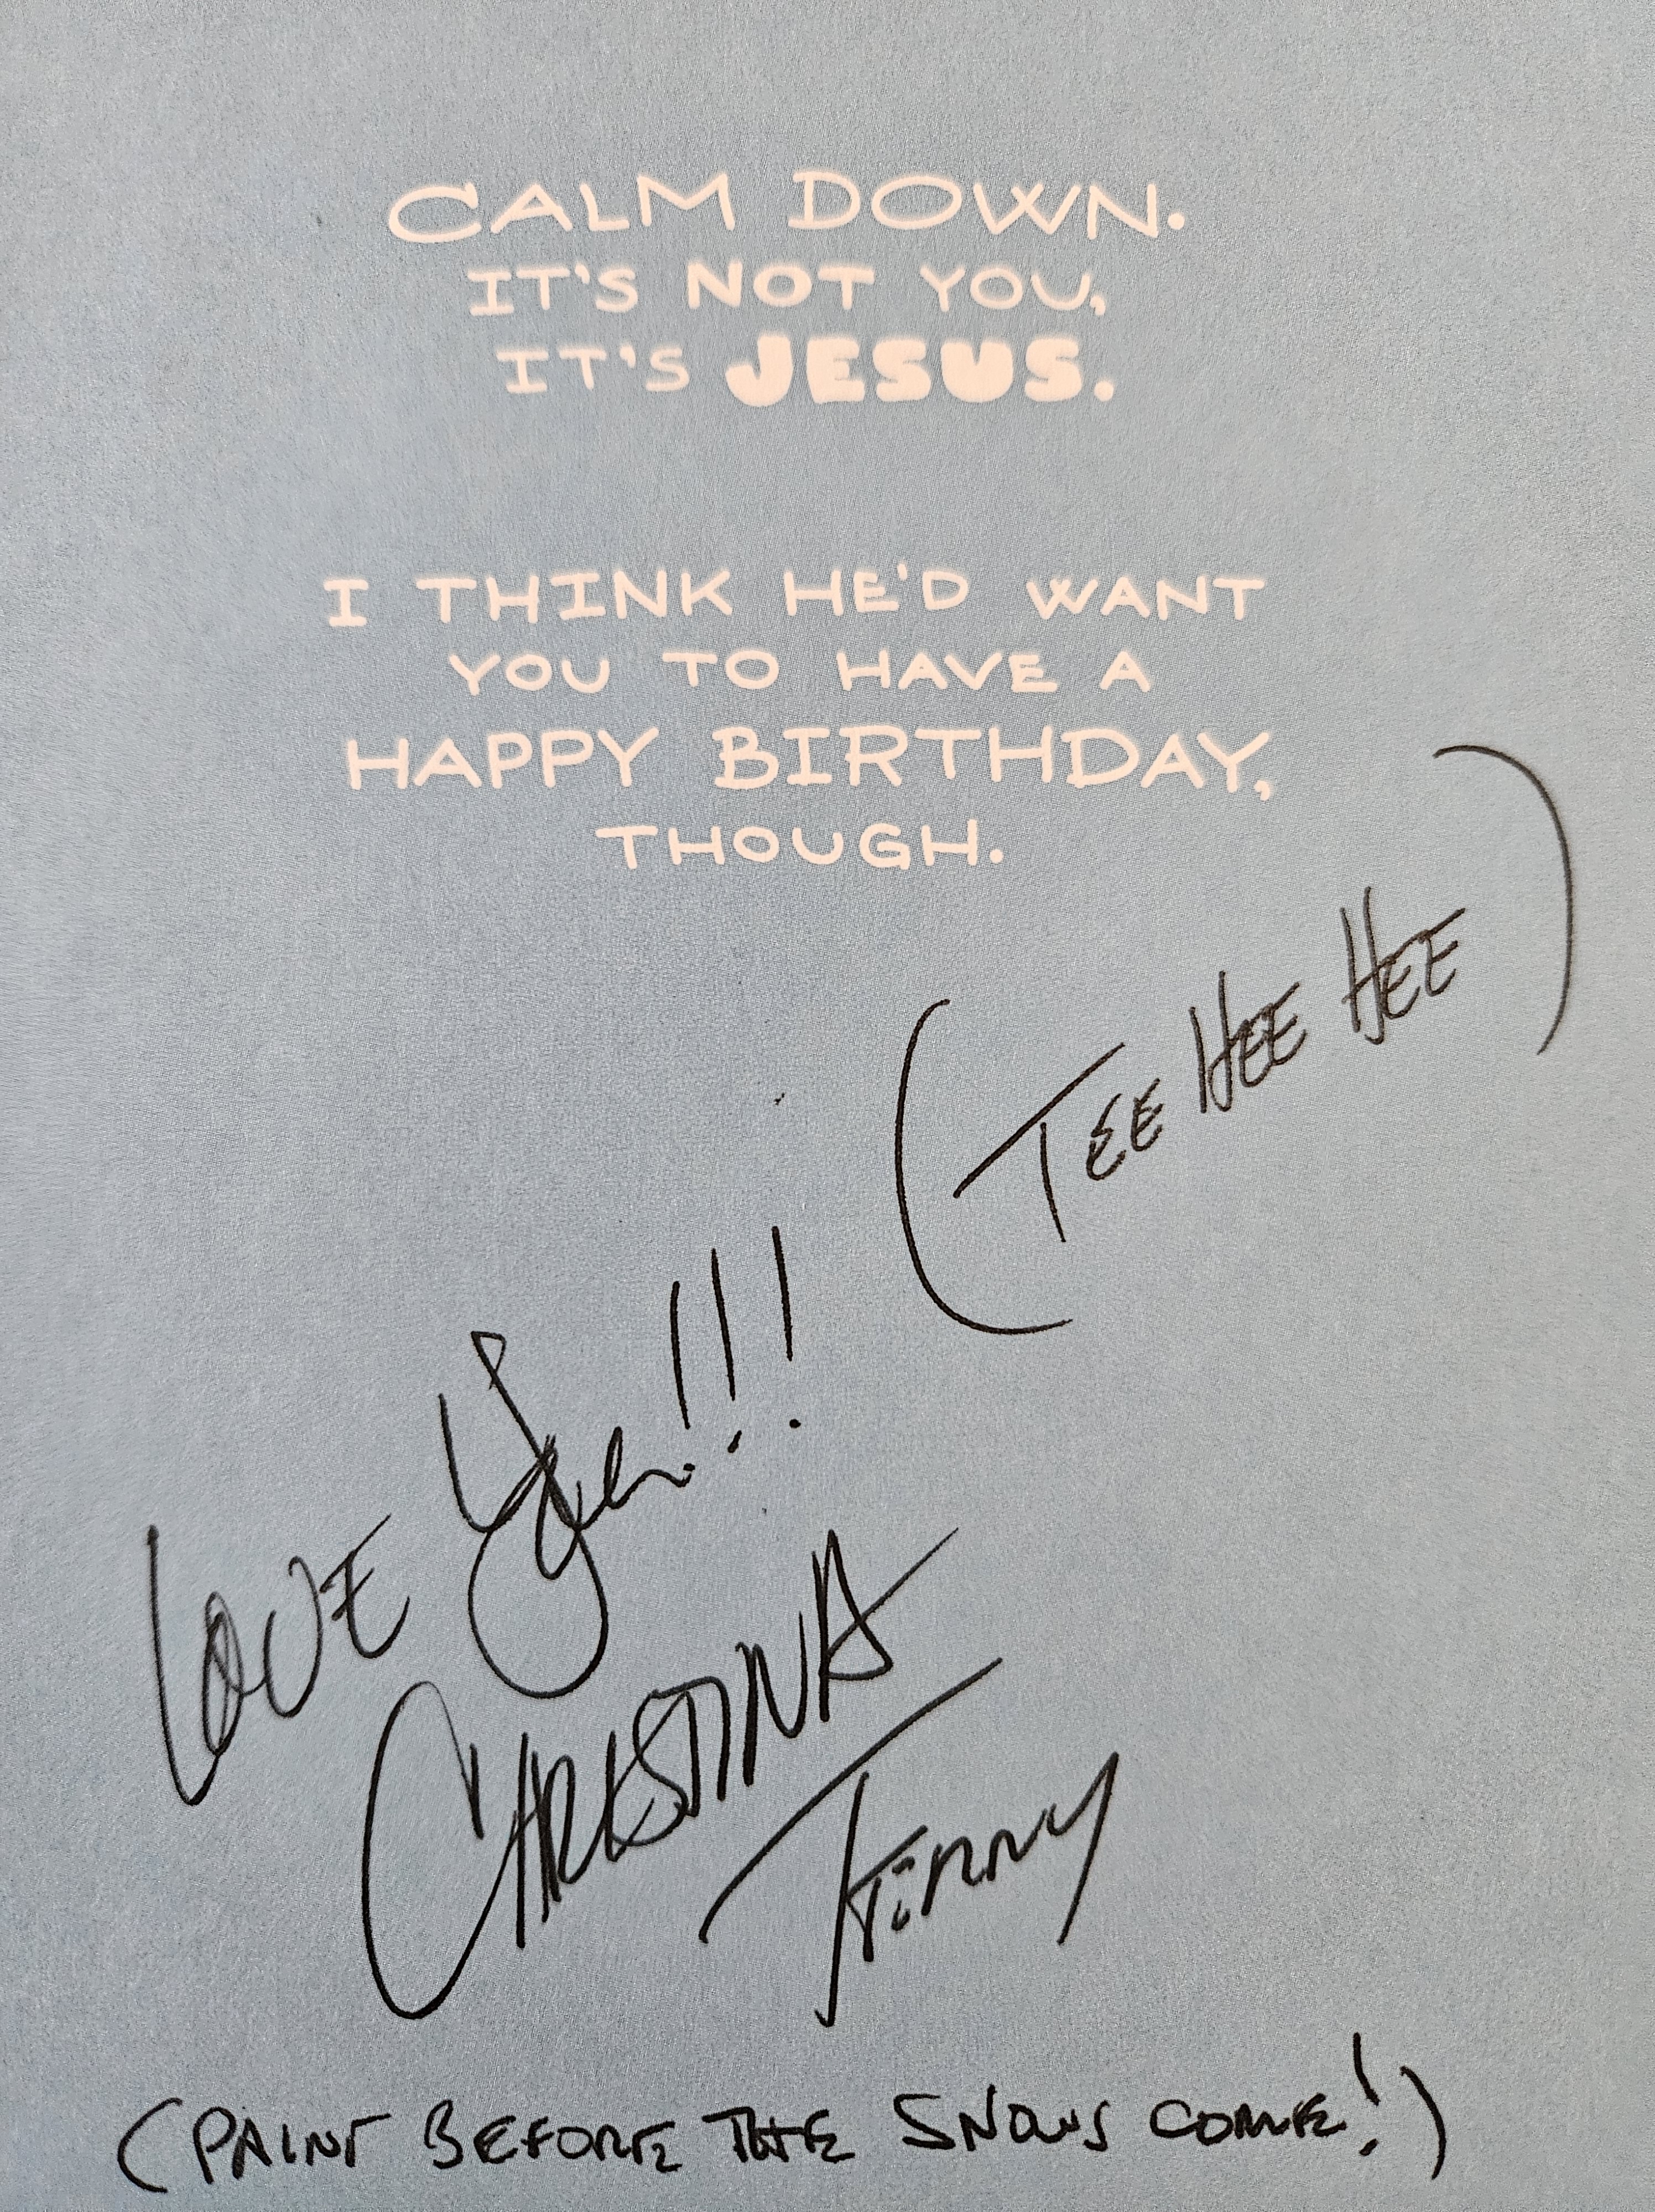 CALM DOWN.
IT'S NOT YOU,
IT'S JESUS.
I THINK HE'D WANT
YOU TO HAVE A
HAPPY BIRTHDAY,
THOUGH.
(TEE HEE HEE)
LOVE You!!!
CHRISTINA
TERRY
(PAINT BEFORE THE SNOWS COME!)